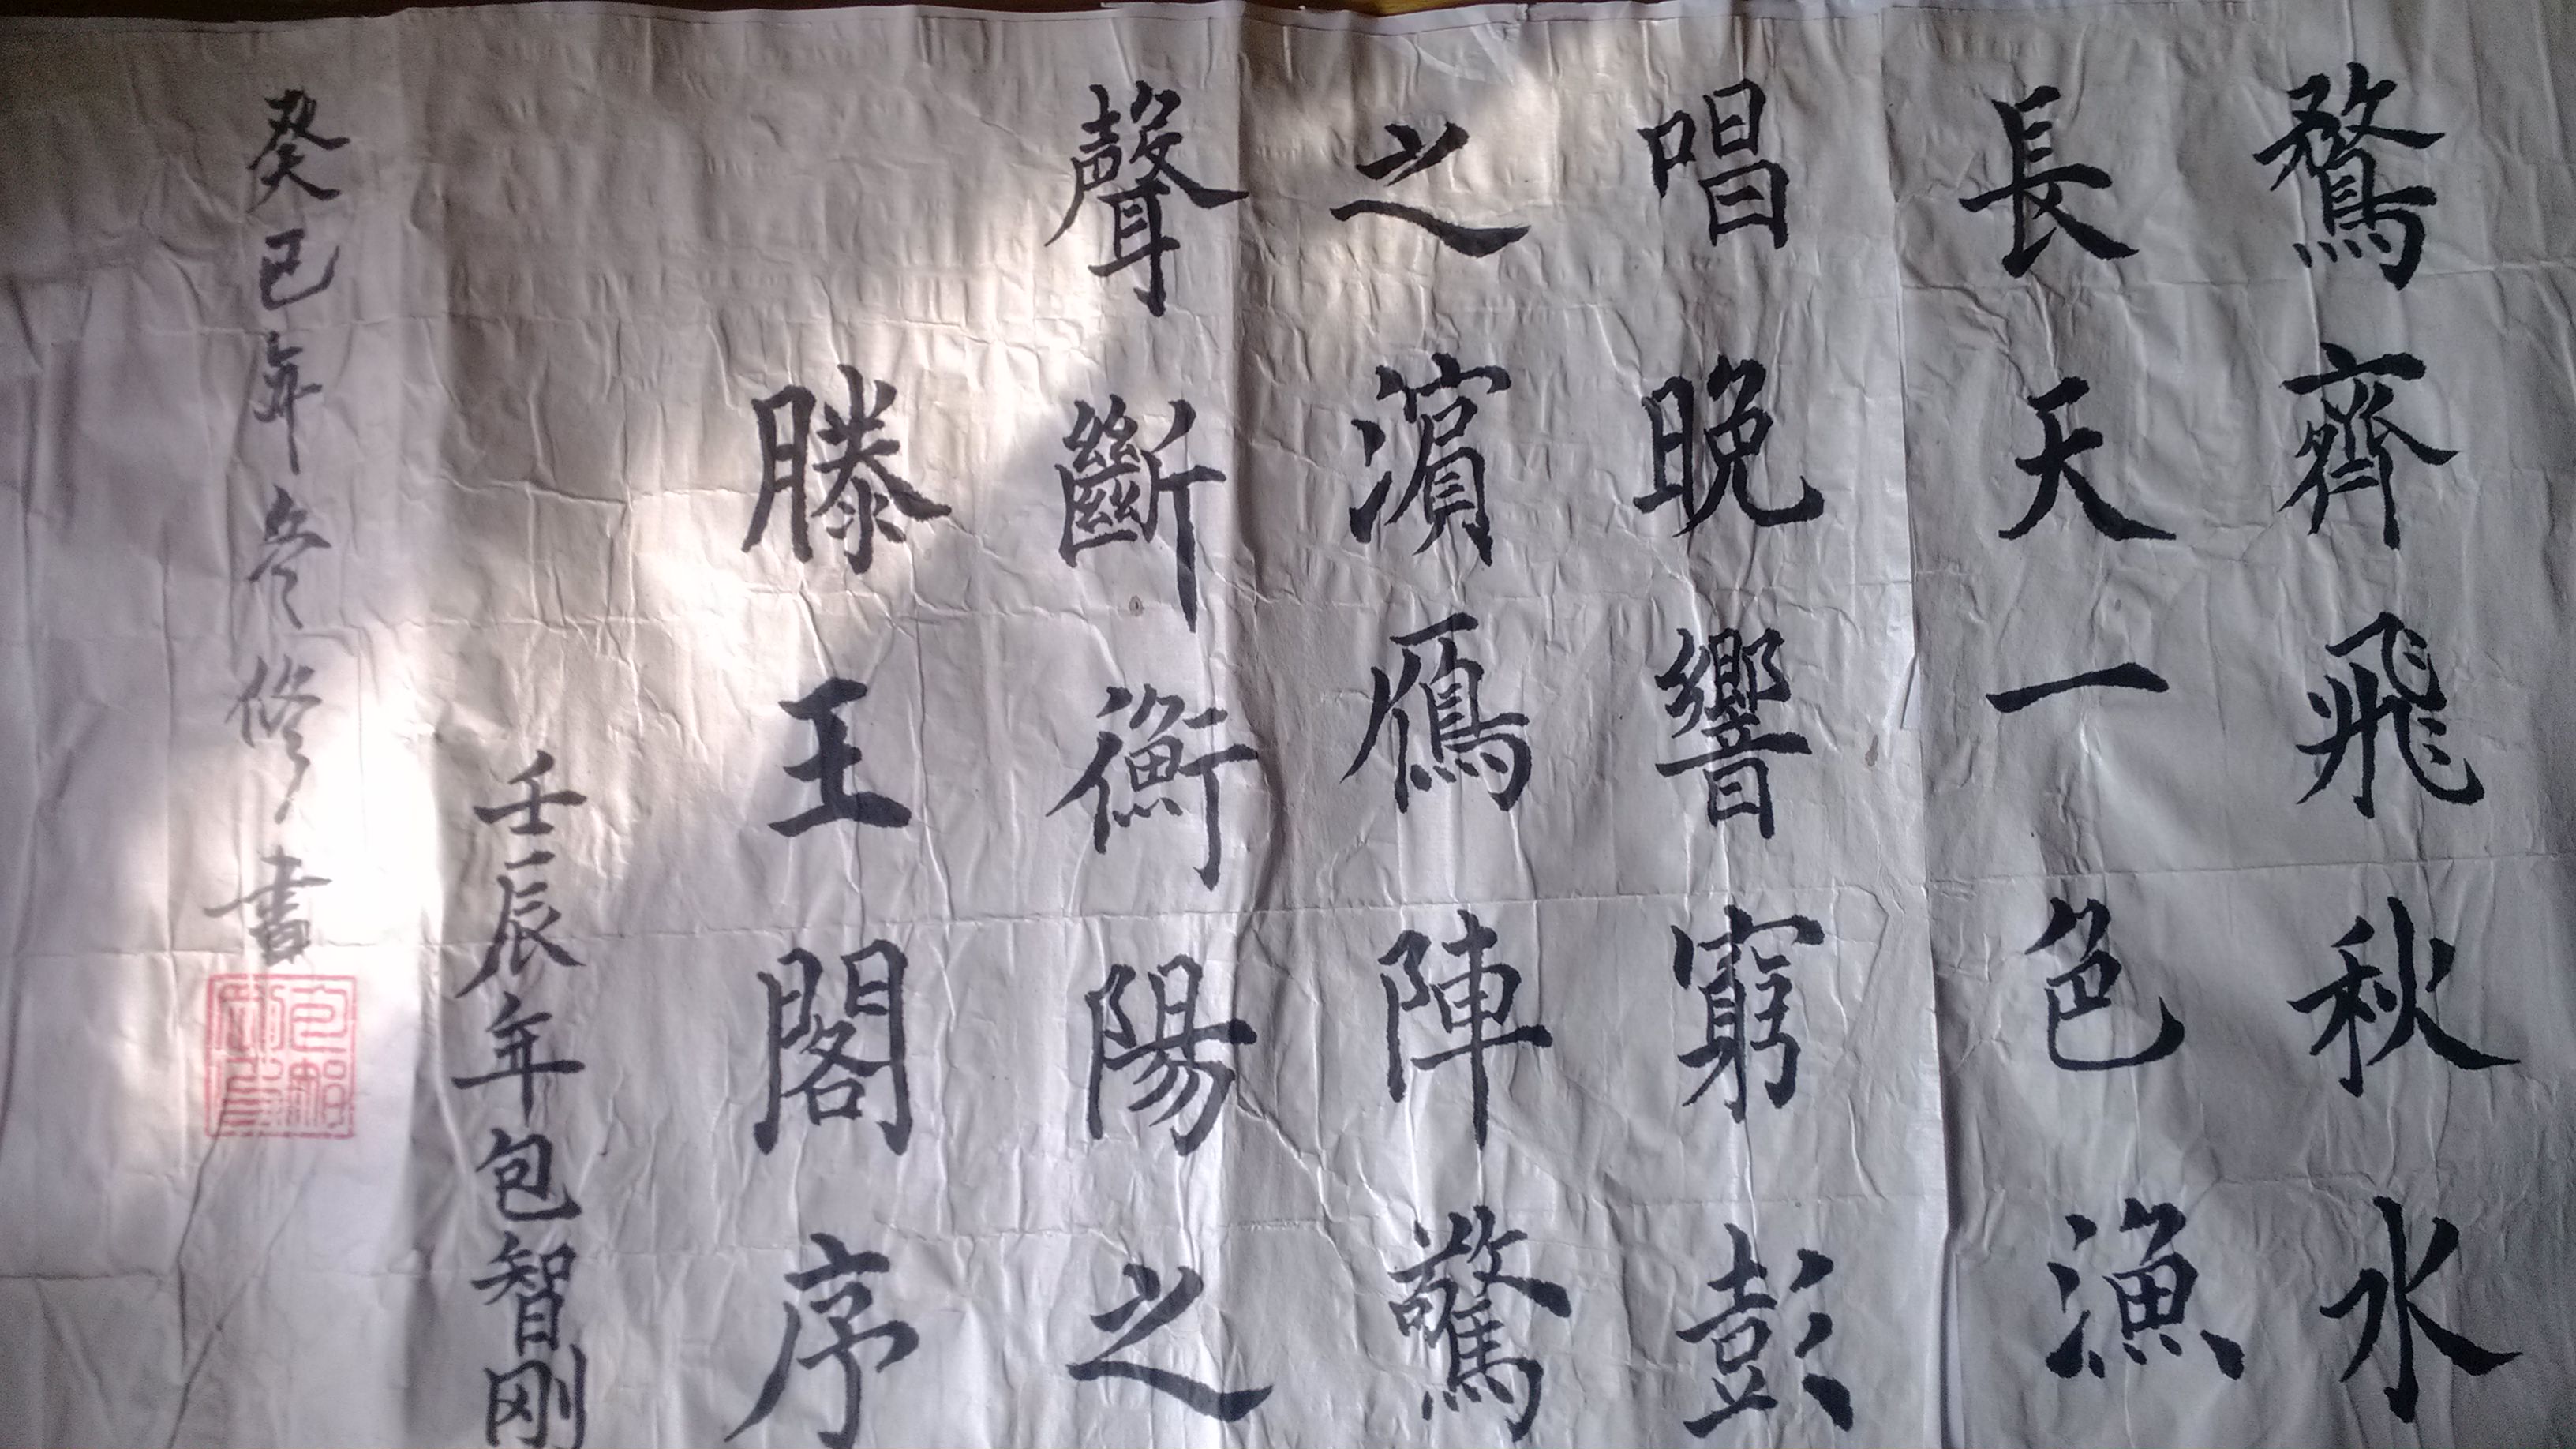 鶩齊飛秋水
長天一色漁
唱晚響窮彭
之濵鴈陣驚
聲斷衡陽之
滕王閣序
壬辰年包智刚
癸巳年冬修書